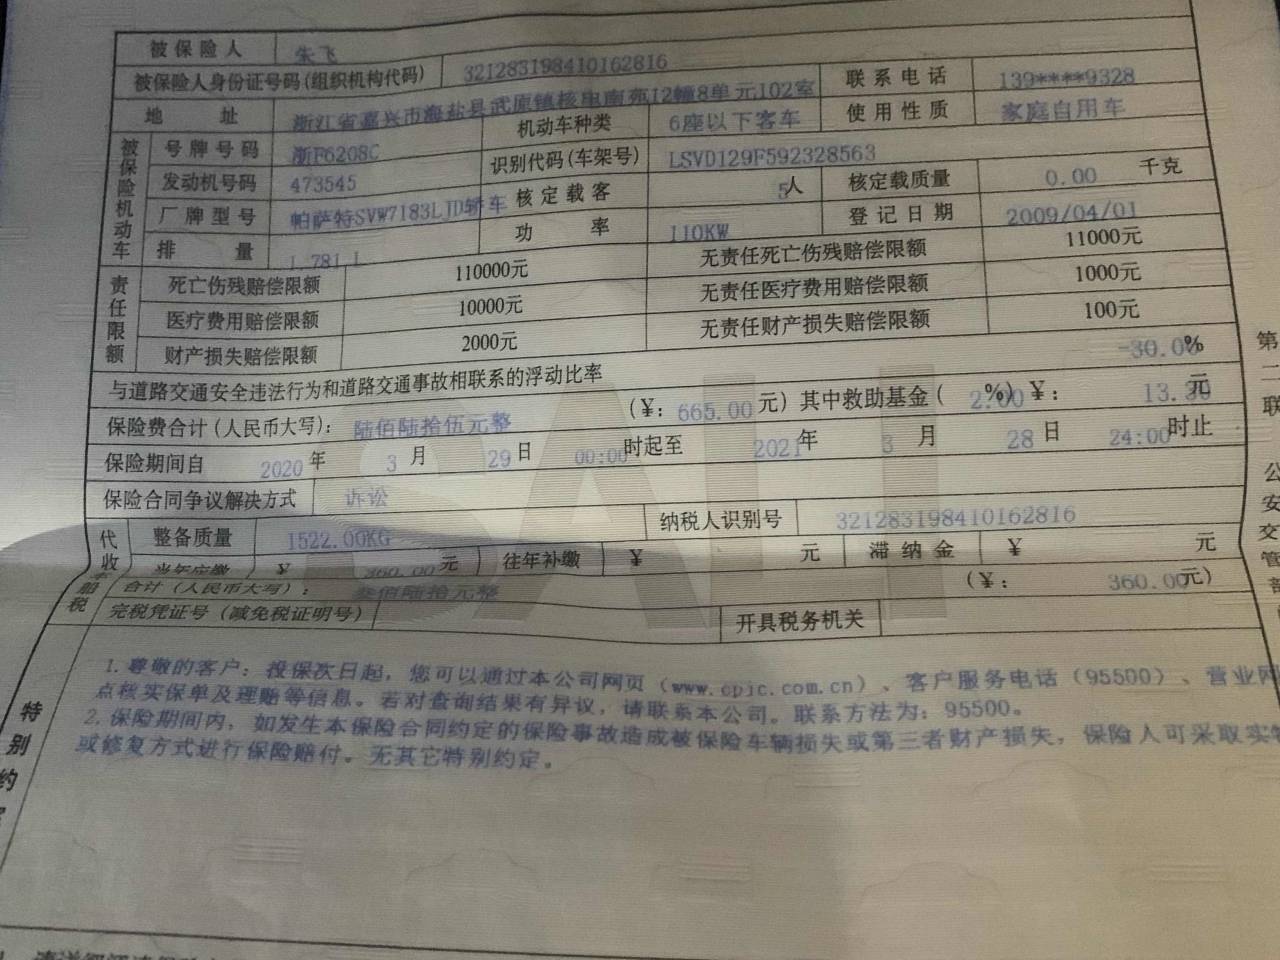 被保险人 朱飞
被保险人身份证号码(组织机构代码) 321283198410162816
地 址 浙江省嘉兴市海盐县武原镇核电南苑12幢8单元102室 联系电话 139****9328
被保险机动车
号牌号码 浙F6208C 机动车种类 6座以下客车 使用性质 家庭自用车
发动机号码 473545 识别代码(车架号) LSVD129F592328563
厂牌型号 帕萨特SVW7183LJD轿车 核定载客 5人 核定载质量 0.00 千克
排 量 1.781 L 功 率 110KW 登记日期 2009/04/01
责任限额
死亡伤残赔偿限额 110000元 无责任死亡伤残赔偿限额 11000元
医疗费用赔偿限额 10000元 无责任医疗费用赔偿限额 1000元
财产损失赔偿限额 2000元 无责任财产损失赔偿限额 100元
与道路交通安全违法行为和道路交通事故相联系的浮动比率 -30.0%
保险费合计(人民币大写): 陆佰陆拾伍元整 (¥: 665.00 元) 其中救助基金( 2.00 %) ¥: 13.30 元
保险期间自 2020 年 3 月 29 日 00:00 时起至 2021 年 3 月 28 日 24:00 时止
保险合同争议解决方式 诉讼
代收车船税
整备质量 1522.00KG 纳税人识别号 321283198410162816
当年应缴 ¥ 360.00 元 往年补缴 ¥ 元 滞纳金 ¥ 元
合计(人民币大写): 叁佰陆拾元整 (¥: 360.00元)
完税凭证号(减免税证明号) 开具税务机关
特别约
1.尊敬的客户: 投保次日起, 您可以通过本公司网页 (www.cpic.com.cn) 、客户服务电话 (95500) 、营业网
点核实保单及理赔等信息。若对查询结果有异议, 请联系本公司。联系方法为: 95500。
2.保险期间内, 如发生本保险合同约定的保险事故造成被保险车辆损失或第三者财产损失, 保险人可采取实物
或修复方式进行保险赔付。无其它特别约定。
第二联
公安交管部
SALI